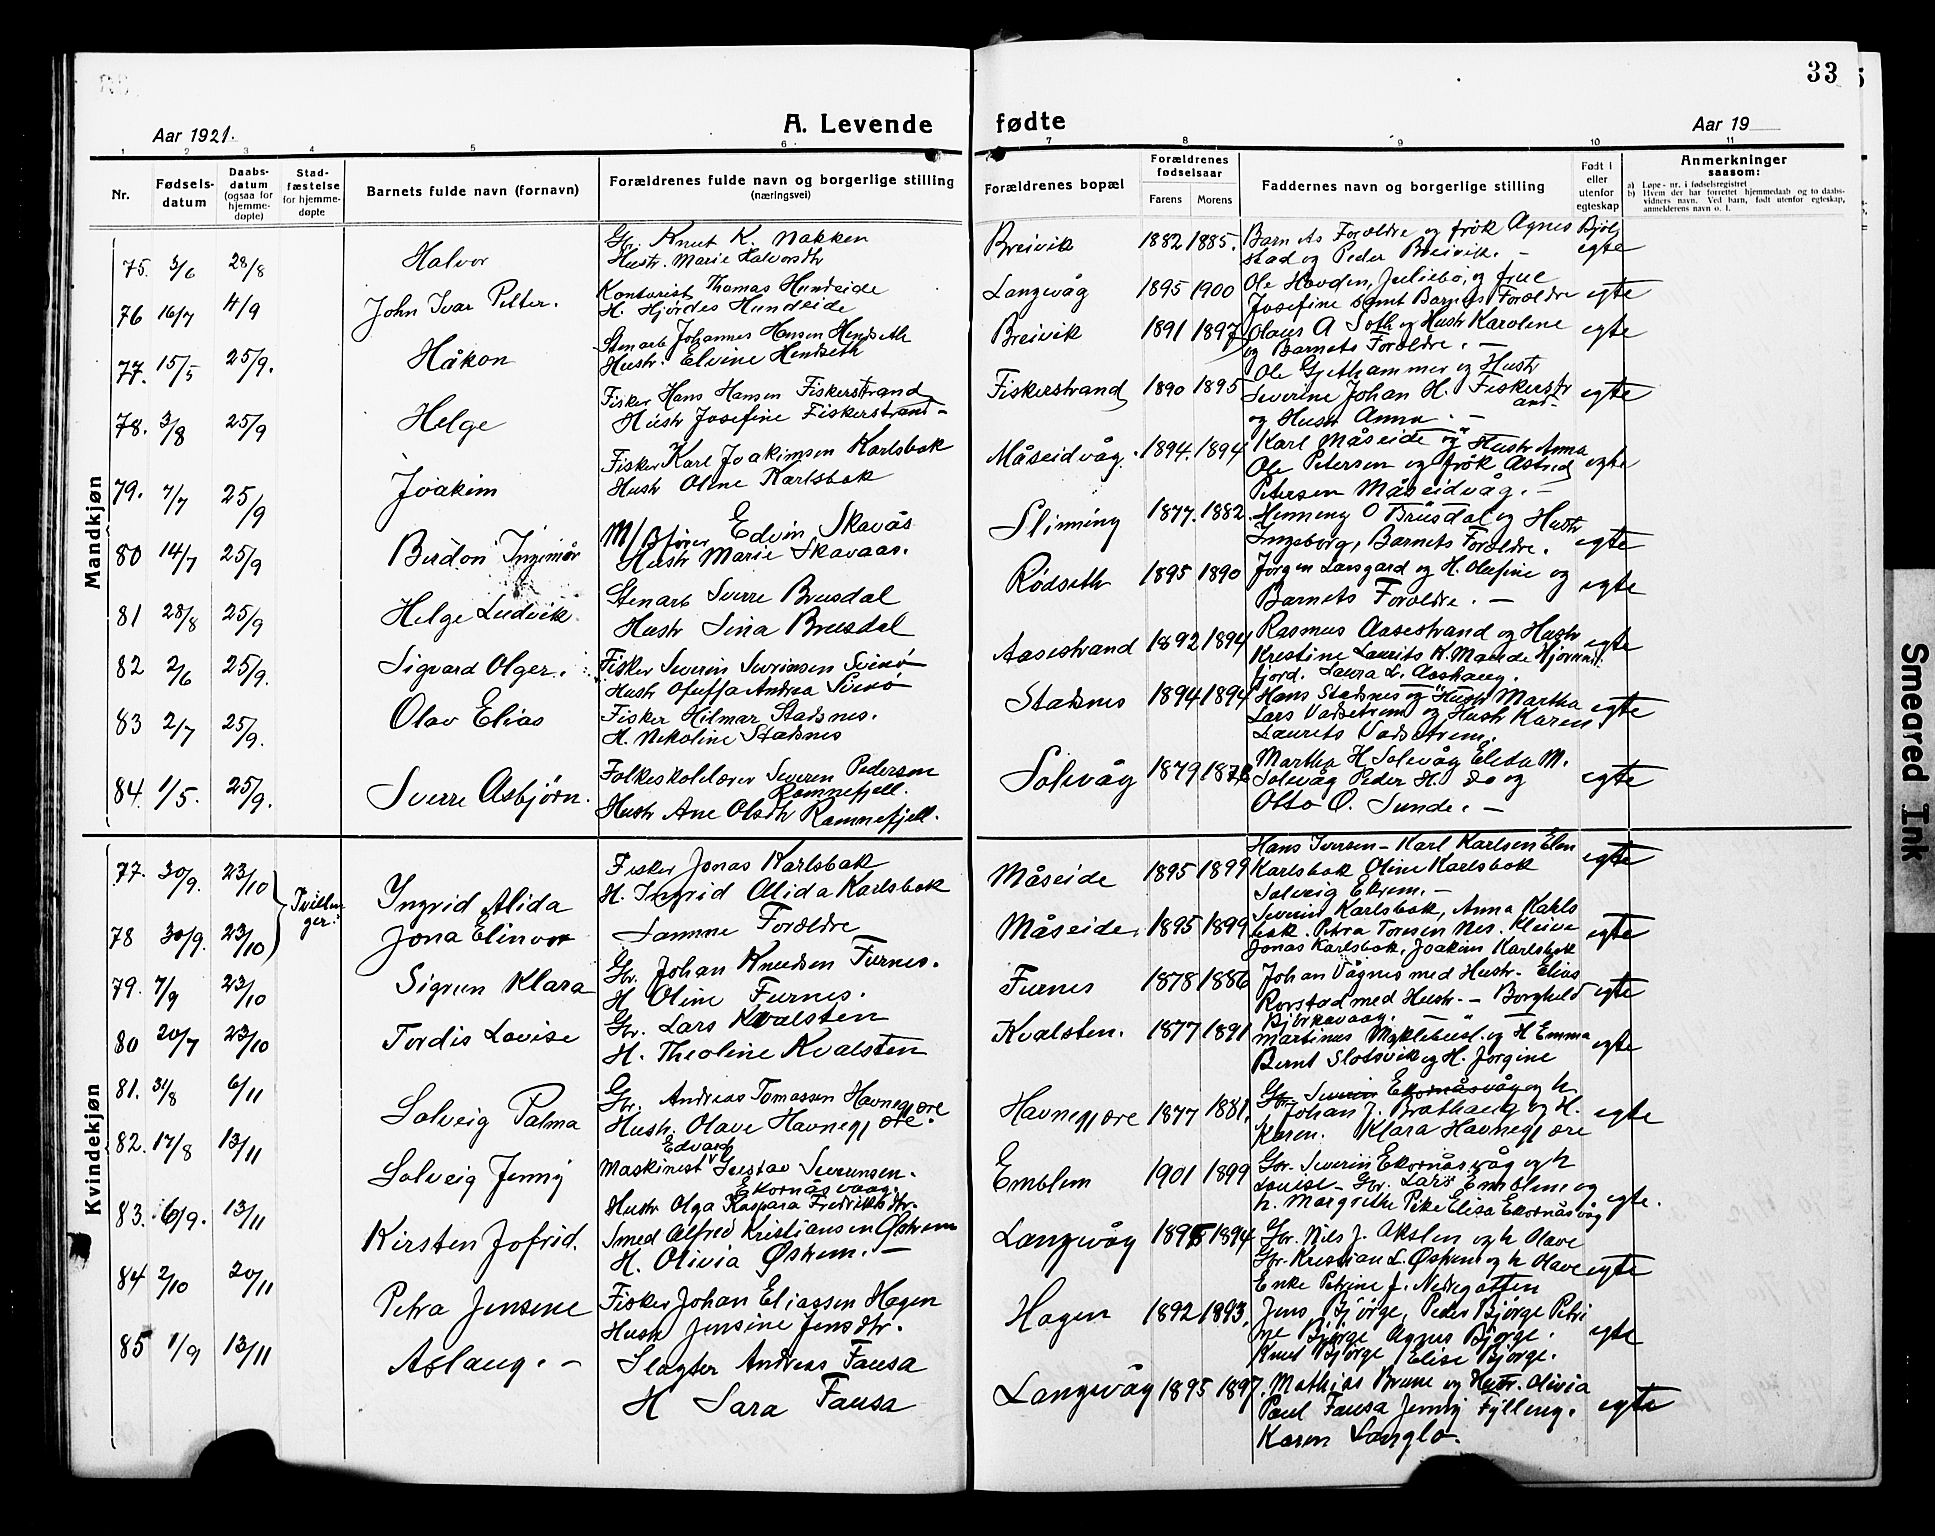 33
Aar 1921.
A. Levende fødte
Aar 19
1 2 3 4 5 6 7 8 9 10 11
Nr.
Fødsels-
datum
Daabs-
datum
(ogsaa for
hjemme-
døpte)
Stad-
fæstelse
for hjemme-
døpte
Barnets fulde navn (fornavn)
Forældrenes fulde navn og borgerlige stilling
(næringsvei)
Forældrenes bopæl
Forældrenes
fødselsaar
Farens Morens
Faddernes navn og borgerlige stilling
Født i
eller
utenfor
egteskap
Anmerkninger
saasom:
a) Løpe-nr. i fødselsregistret
b) Hvem der har forrettet hjemmedaab og to daabs-
vidners navn. Ved barn, født utenfor egteskap,
anmelderens navn o. l.
Mandkjøn
75. 3/6 28/8 Halvor
Gbr. Knut K. Nakken
Hustr. Marie Halvorsdtr
Breivik 1882 1885.
Barnets Foræ­ldre og frøk Agnes BjØl
stad og Peder Breivik. -
egte
76 16/7 4/9 John Ivar Petter.
Kontorist Thomas Hundeide
H. Hjørdis Hundeide
Langevåg 1895 1900
Ole Hovden, Juliebø, og frue
Josefine samt Barnets Forældre
egte
77. 15/5 25/9. Håkon
Stenarb Johannes Hansen Hendseth
Hustr. Elvine Hendseth
Breivik 1891 1897
Olaus A Soth og Hustr Karolene
og Barnets Forældre. -
egte
78. 3/8 25/9 Helge
Fisker Hans Hansen Fiskerstrand
Hustr Josefine Fiskerstrand -
Fiskerstrand 1890 1895
Ole Gjethammer og Hustr
Severine Johan H. Fiskerstr
and-
og Hustr Anna. -
egte
79. 7/7 25/9 Joakim
Fisker Karl Joakimsen Karlsbak
Hustr Oline Karlsbak
Måseidvåg. 1894. 1894
Karl Måseide og Hustr Anna
Ole Petersen og frøk Astrid
Petersen Måseidvåg. -
egte
80 14/7 25/9 Birdon Ingemår
M/Bfører Edvin Skavås
Hustr Marie Skavaas.
Slinning 1877. 1882.
Henneng O Brusdal og Hustr
Ingeborg, Barnets Forældre.
egte
81 28/8 25/9 Helge Ludvik.
Stenarb Sverre Brusdal
Hustr Sina Brusdal
Rødseth 1895 1890
Jørgen Larsgard og H. Olefine og
Barnets Forældre. -
egte
82 2/6 25/9. Sigvard Olger.
Fisker Severin Sevrinsen Svinø
Hustr Oluffa Andrea Svinø
Aasestrand 1892 1894
Rasmus Aasestrand og Hustr
Kristine Laurits K. Mande Hjørund
fjord. Laura L. Aashaug.
egte
83 2/7 25/9. Olav Elias
Fisker Hilmar Stadsnes.
H. Nikoline Stadsnes
Stadsnes 1894 1894
Hans Stadsnes og Hustr Martha
Lars Vadsetrem og Hustr Karen
Laurits Vadsetrem.
egte
84. 1/5. 25/9. Sverre Asbjørn.
Folkeskolelærer Severen Pedersen
Ramnefjell.
Hustr Ane Olsdtr Ramnefjell.
Solevåg 1879 187
Martha H. Solevåg Elida M.
Solevåg Peder H. do og
Otto O. Sunde. -
egte
Kvindekjøn
77. 30/9. 23/10 Tvillin-
ger. Ingrid Alida
Fisker Jonas Karlsbak
H. Ingrid Alida Karlsbak
Måseide 1895 1899
Hans Iversen - Karl Karlsen Elen
Karlsbak Oline Karlsbak
Solveig Ekrem. -
egte
78 30/9. 23/10 Jona Elinvor
Samme Forældre
Måseide, 1895 1899
Severin Karlsbak, Anna Karls
bak. Petra Toresen Nes. Kleive
Jonas Karlsbak, Joakim Karlsbak
egte
79. 7/9 23/10 Sigrun Klara
Gbr. Johan Knudsen Furnes.
H Oline Furnes.
Furnes 1878 1886
Johan Vågnes med Hustr - Elias
Rorstad med Hustr. - Borghild
Bjørkavaag.
egte
80 20/7 23/10 Tordis Lovise
Gbr. Lars Kvalsten
H. Theoline Kvalsten
Kvalsten. 1877 1891
Martinus Myklebust. og H Emma
Bernt Slotsvik og H. Jørgine
egte
81. 31/8 6/11 Solveig Palma
Gbr. Andreas Tomassen Havnegjære
Hustr. Olave Havnegjære.
Havnegjære 1877 1881,
Gbr. Severin Ekornåsvåg og h
Johan J. Brathaug og H.
Karen. Klara Havnegjære
egte
82. 17/8 13/11 Solveig Jenny
Edvard
Maskinist Gustav Severinsen.
Ekornåsvaag.
Hustr Olga Kaspara Fredriksdtr.
Emblem 1901 1899
Gbr. Severin Ekornåsvåg og h
Louise - Gbr. Lars Emblem og
h. Margrethe Pike Elisa Ekornåsvåg
egte.
83. 6/9. 13/11 Kirsten Jofrid.
Smed Alfred Kristiansen Østrem
H. Olivia Østrem. -
Langevåg 1895 1894
Gbr. Nils J. Akslen og h Olave
Gbr. Kristian L. Østrem og h Olave
Enke Petrine J. Nedregotten
egte
84 2/10 20/11 Petra Jensine
Fisker Johan Eliassen Hagen
Hustr Jensine Jensdtr.
Hagen 1892 1893,
Jens Bjørge, Peder Bjørge Petri
ne Bjørge Agnes Bjørge.
Knut Bjørge Elise Bjørge.
egte
85 1/9 13/11 Aslaug. -
Slagter Andreas Fausa
H Sara Fausa
Langevåg 1895 1897.
Mathias Brune og Hustr. Olivia
Paul Fausa Jenny Fylling.
Karen Langlo.
egte
Smeared Ink